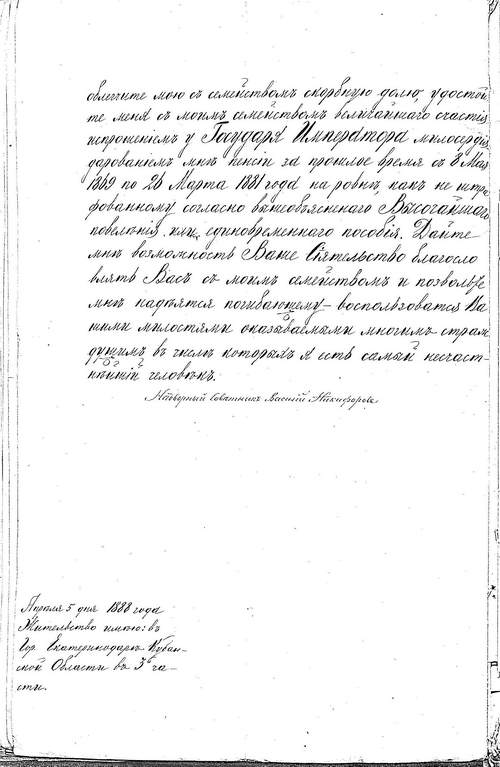 облегчите мою съ семействомъ скорбную долю, удостой
те меня съ моимъ семействомъ величайшаго счастія
испрошеніемъ у Государя Императора милосердія
дарованіемъ мнѣ пенсіи за прошлое время съ 8 Мая
1869 по 26 Марта 1881 года на ровнѣ, какъ не штра
фованному согласно вышеобъясненаго Высочайшаго
повелѣнія. или, единовременнаго пособія. Дайте
мнѣ возможность Ваше Сіятельство благосло
влять Васъ съ моимъ семействомъ и позвольте
мнѣ надѣятся погибающему воспользоватся Ва
шими милостями оказываемыми многимъ страж
дущимъ въ числѣ которыхъ я есть самый несчаст
нѣйшій человѣкъ.
Надворный Совѣтникъ Василій Никифоровъ
Апрѣля 5 дня 1888 года
Жительство имѣю: въ
Гор. Екатеринодарѣ Кубан-
ской Области въ 3й ча-
сти.